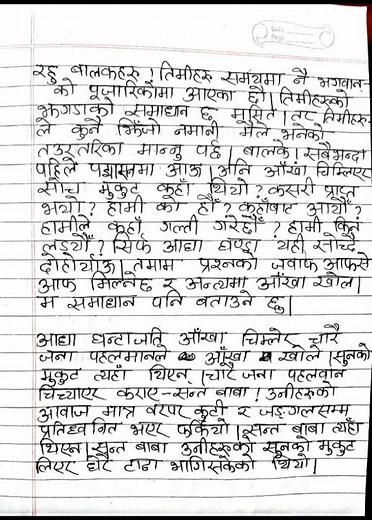 रहु बालकहरू ! तिमीहरू समयमा नै भगवान-
को पूजारिकोमा आएका छौ। तिमीहरूको
झगडाको समाधान छ मसित। तर तिमीहरू-
ले कुनै झिंजो नमानी मैले भनेको
तउरतरिका मान्नु पर्छ। बालके ! सबैभन्दा
पहिले पद्मासनमा आऊ। अनि आँखा चिम्लिएर
सोच मुकुट कहाँ थियो ? कसरी प्राप्त
भयो ? हामी को हौं ? कहाँबाट आयौं ?
हामीले कहाँ गल्ती गरेछौं ? हामी किन
लड्यौं ? सिर्फ आधा घण्टा यही सोच्दै
दोहोर्याऊ। तमाम प्रश्नको जवाफ आफसे
आफ मिल्नेछ र अन्त्यमा आँखा खोल।
म समाधान पनि बताउने छु।
आधा घन्टाजति आँखा चिम्लेर चारै
जना पहलमानले आँखा खोले। सुनको
मुकुट त्यहाँ थिएन। चारै जना पहलवान
चिच्याएर कराए - सन्त बाबा ! उनीहरूको
आवाज मात्र वरपर कुटी र जङ्गलसम्म
प्रतिध्वनित भएर फर्कियो। सन्त बाबा त्यहाँ
थिएन। सन्त बाबा उनीहरूको सुनको मुकुट
लिएर धेरै टाढा भागिसकेको थियो।